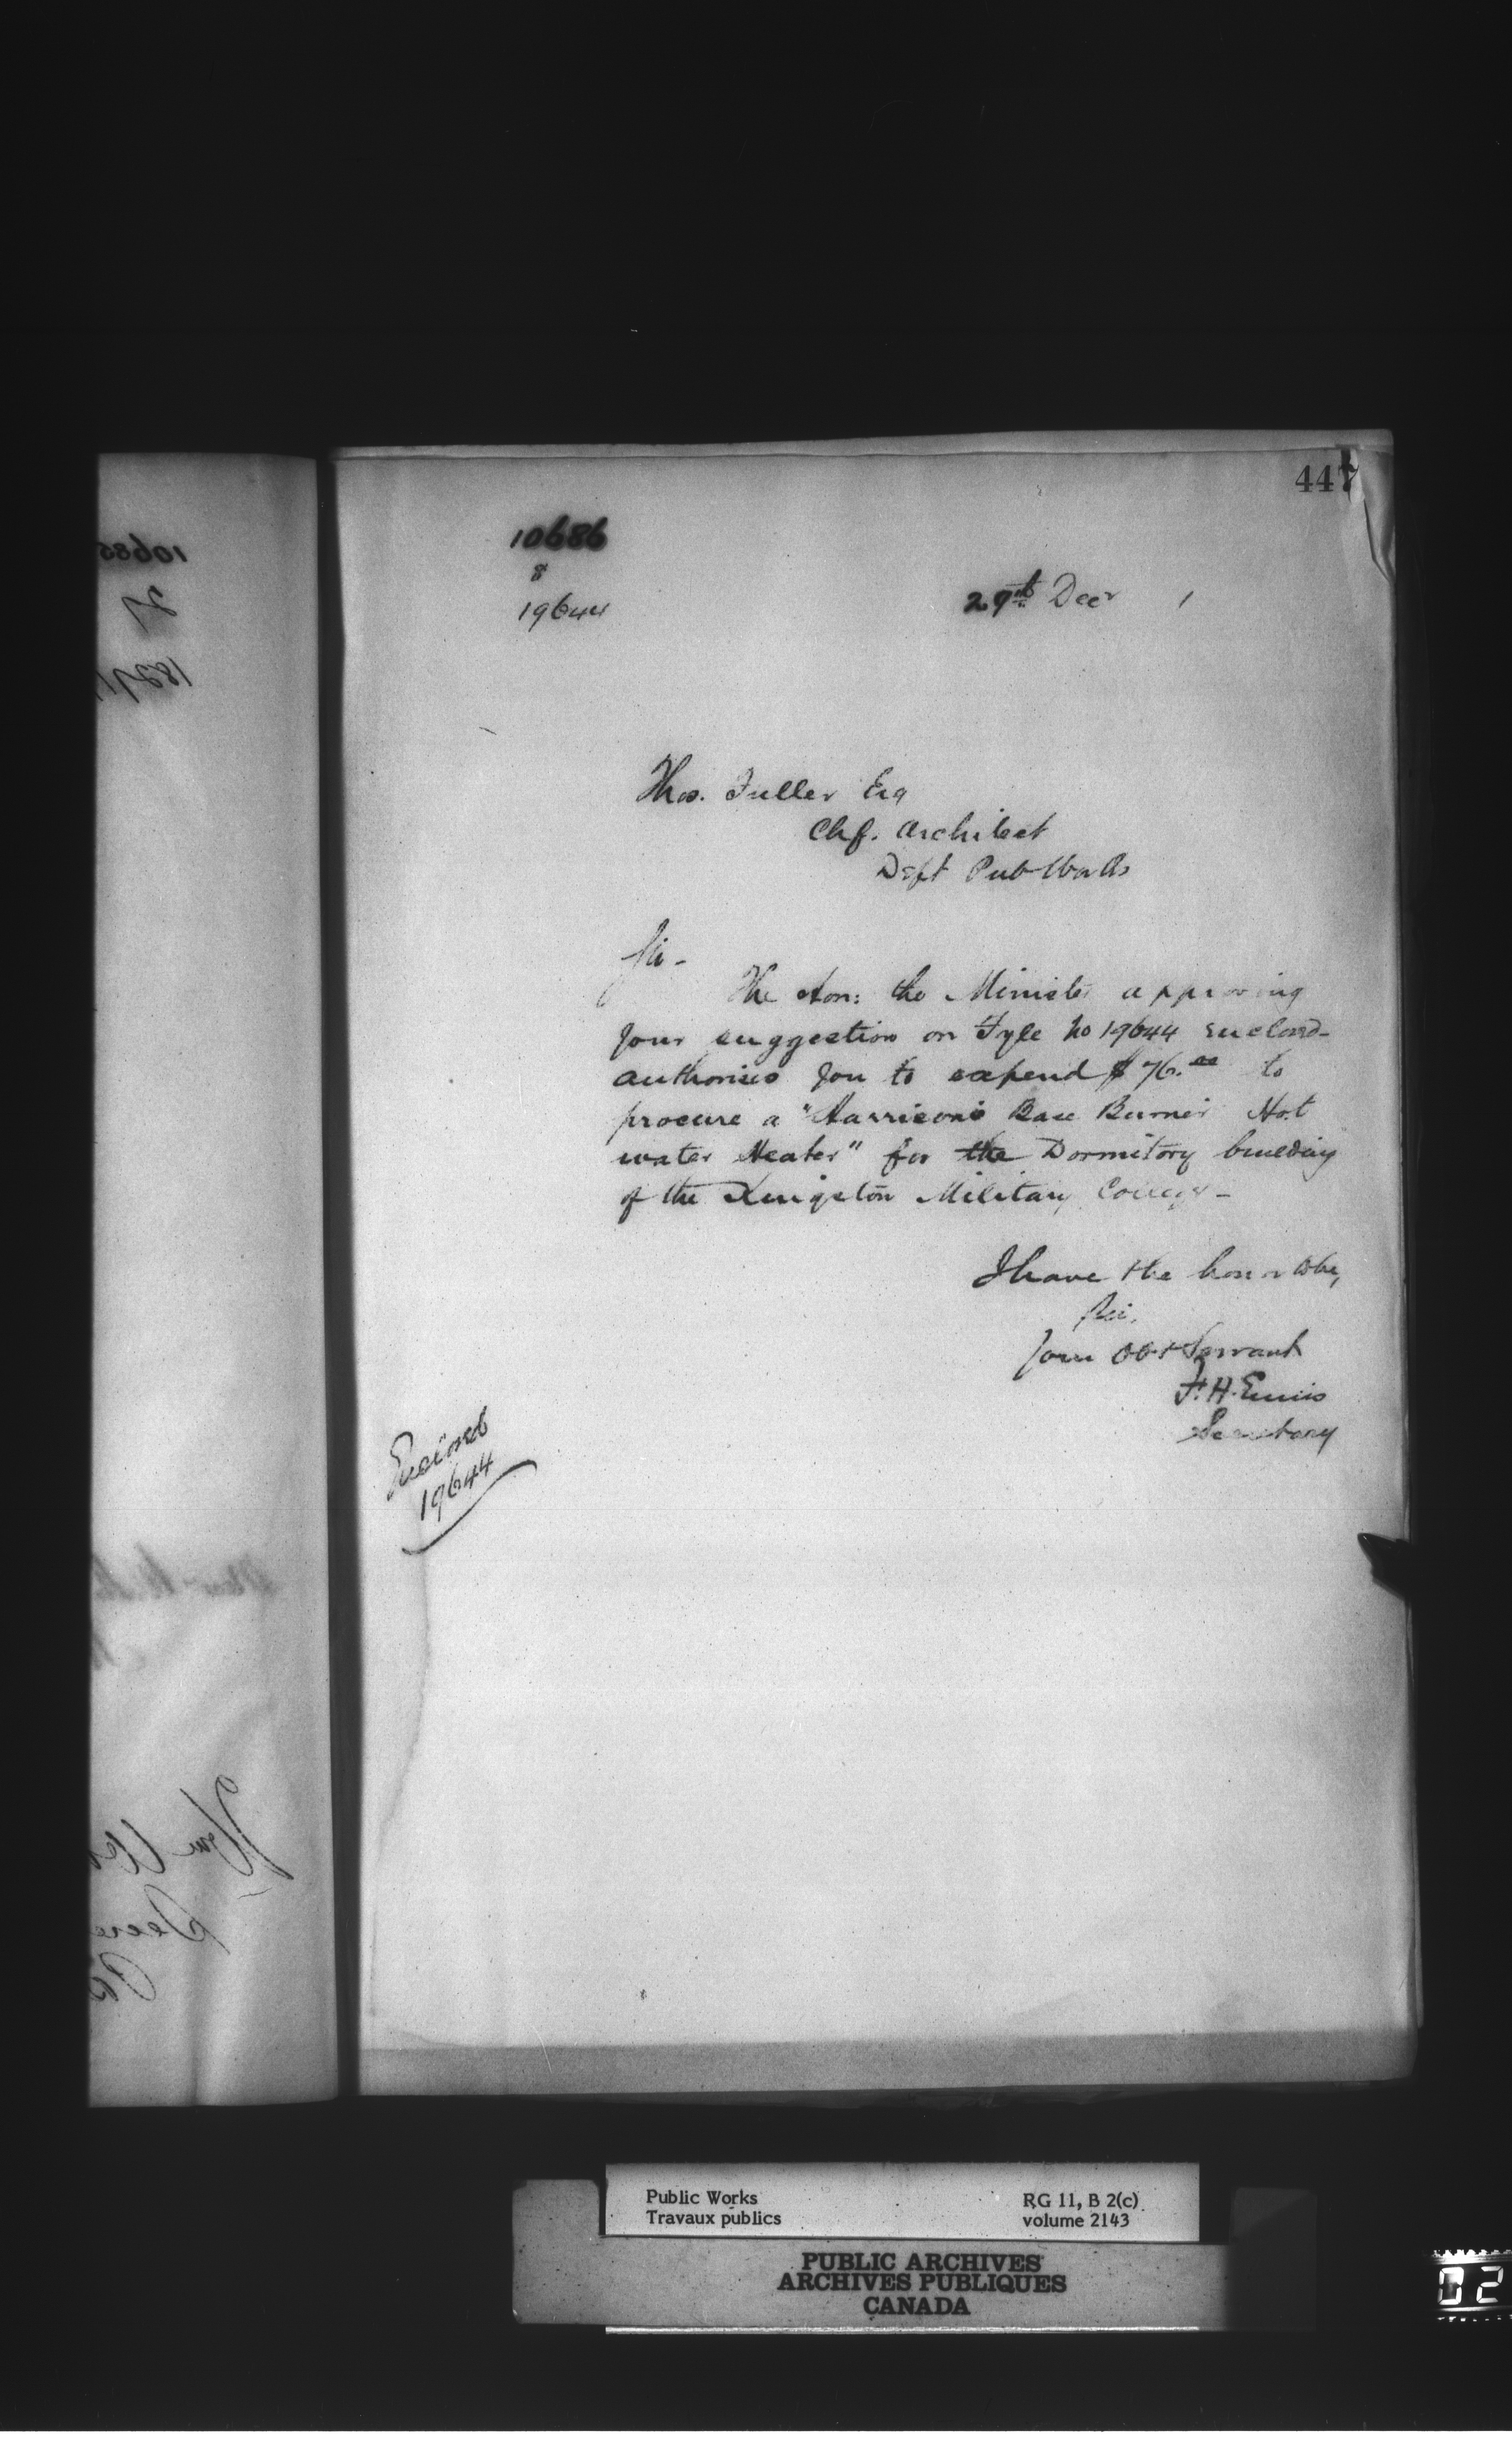 447
10686
8
19644
29th Decr 1
Thos. Fuller Esq
Chf. Architect
Dept Pub Works
Sir -
The Hon: the Minister approving
your suggestion on Fyle No 19644 enclosed
authorises you to expend $76.00 to
procure a "Harrison's Base Burner Hot
water Heater" for the Dormitory building
of the Kingston Military College -
I have the honor to be,
Sir,
Your Obt Servant
F. H. Ennis
Secretary
Enclosed
19644
Public Works
Travaux publics
RG 11, B 2(c)
volume 2143
PUBLIC ARCHIVES
ARCHIVES PUBLIQUES
CANADA
02